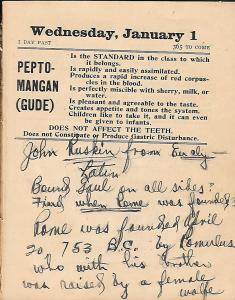 Wednesday, January 1
1 DAY PAST
365 TO COME
PEPTO-
MANGAN
(GUDE)
Is the STANDARD in the class to which
it belongs.
Is rapidly and easily assimilated.
Produces a rapid increase of red corpus-
cles in the blood.
Is perfectly miscible with sherry, milk, or
water.
Is pleasant and agreeable to the taste.
Creates appetite and tones the system.
Children like to take it, and it can even
be given to infants.
DOES NOT AFFECT THE TEETH.
Does not Constipate or Produce Gastric Disturbance.
John Ruskin from
Latin
Bound Gaul on all sides.
Find when Rome was founded.
Rome was founded April
20 753 B.C. by Romulus
who with his brother
was raised by a female
wolfe